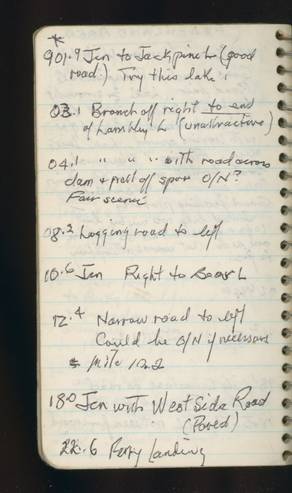 *
901.9 Jcn to Jackpine L (good
road.) Try this lake!
03.1 Branch off right to end
of Lambly L (unattractive)
04.1 " " " with road across
dam + pull off spot O/N?
Fair scenic
08.2 Logging road to left
10.6 Jcn Right to Bear L
12.4 Narrow road to left
Could be O/N if necessary
Mile 12.2
18.0 Jcn with West Side Road
(Paved)
22.6 Ferry Landing